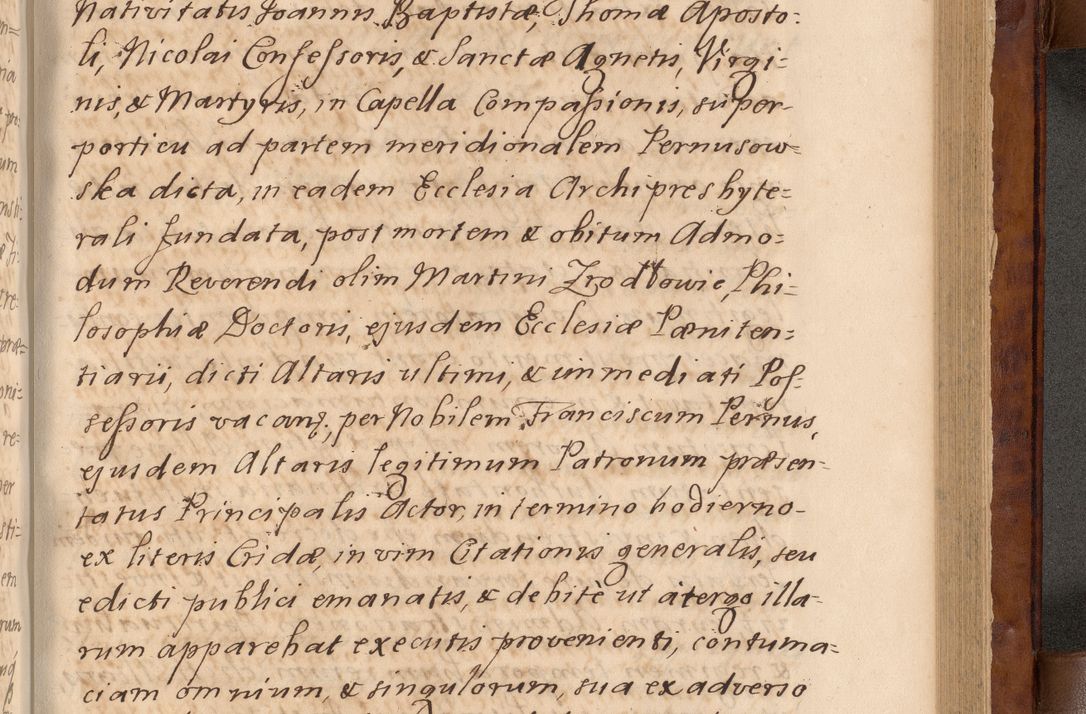 Nativitatis Joannis Baptistæ, Thomæ Aposto:
li, Nicolai Confessoris, & Sanctæ Agnetis, Virgi:
nis, & Martyris, in Capella Compassionis, super-
porticu ad partem meridionalem Pernusow:
ska dicta, in eadem Ecclesia Archipresbyte:
rali fundata, post mortem & obitum Admo:
dum Reverendi olim Martini Zrodłowic, Phi:
losophiæ Doctoris, ejusdem Ecclesiæ Pæniten:
tiarii, dicti Altaris ultimi, & immediati Pos:
sessoris vacanȝ. per Nobilem Franciscum Pernus,
ejusdem Altaris legitimum Patronum præsen:
tatus Principalis Actor, in termino hodierno-
ex literis Cridæ, in vim Citationis generalis, seu
edicti publici emanatis, & debitè ut à tergo illa-
rum apparebat executis provenienti, contuma:
ciam omnium, & singulorum, sua ex adverso